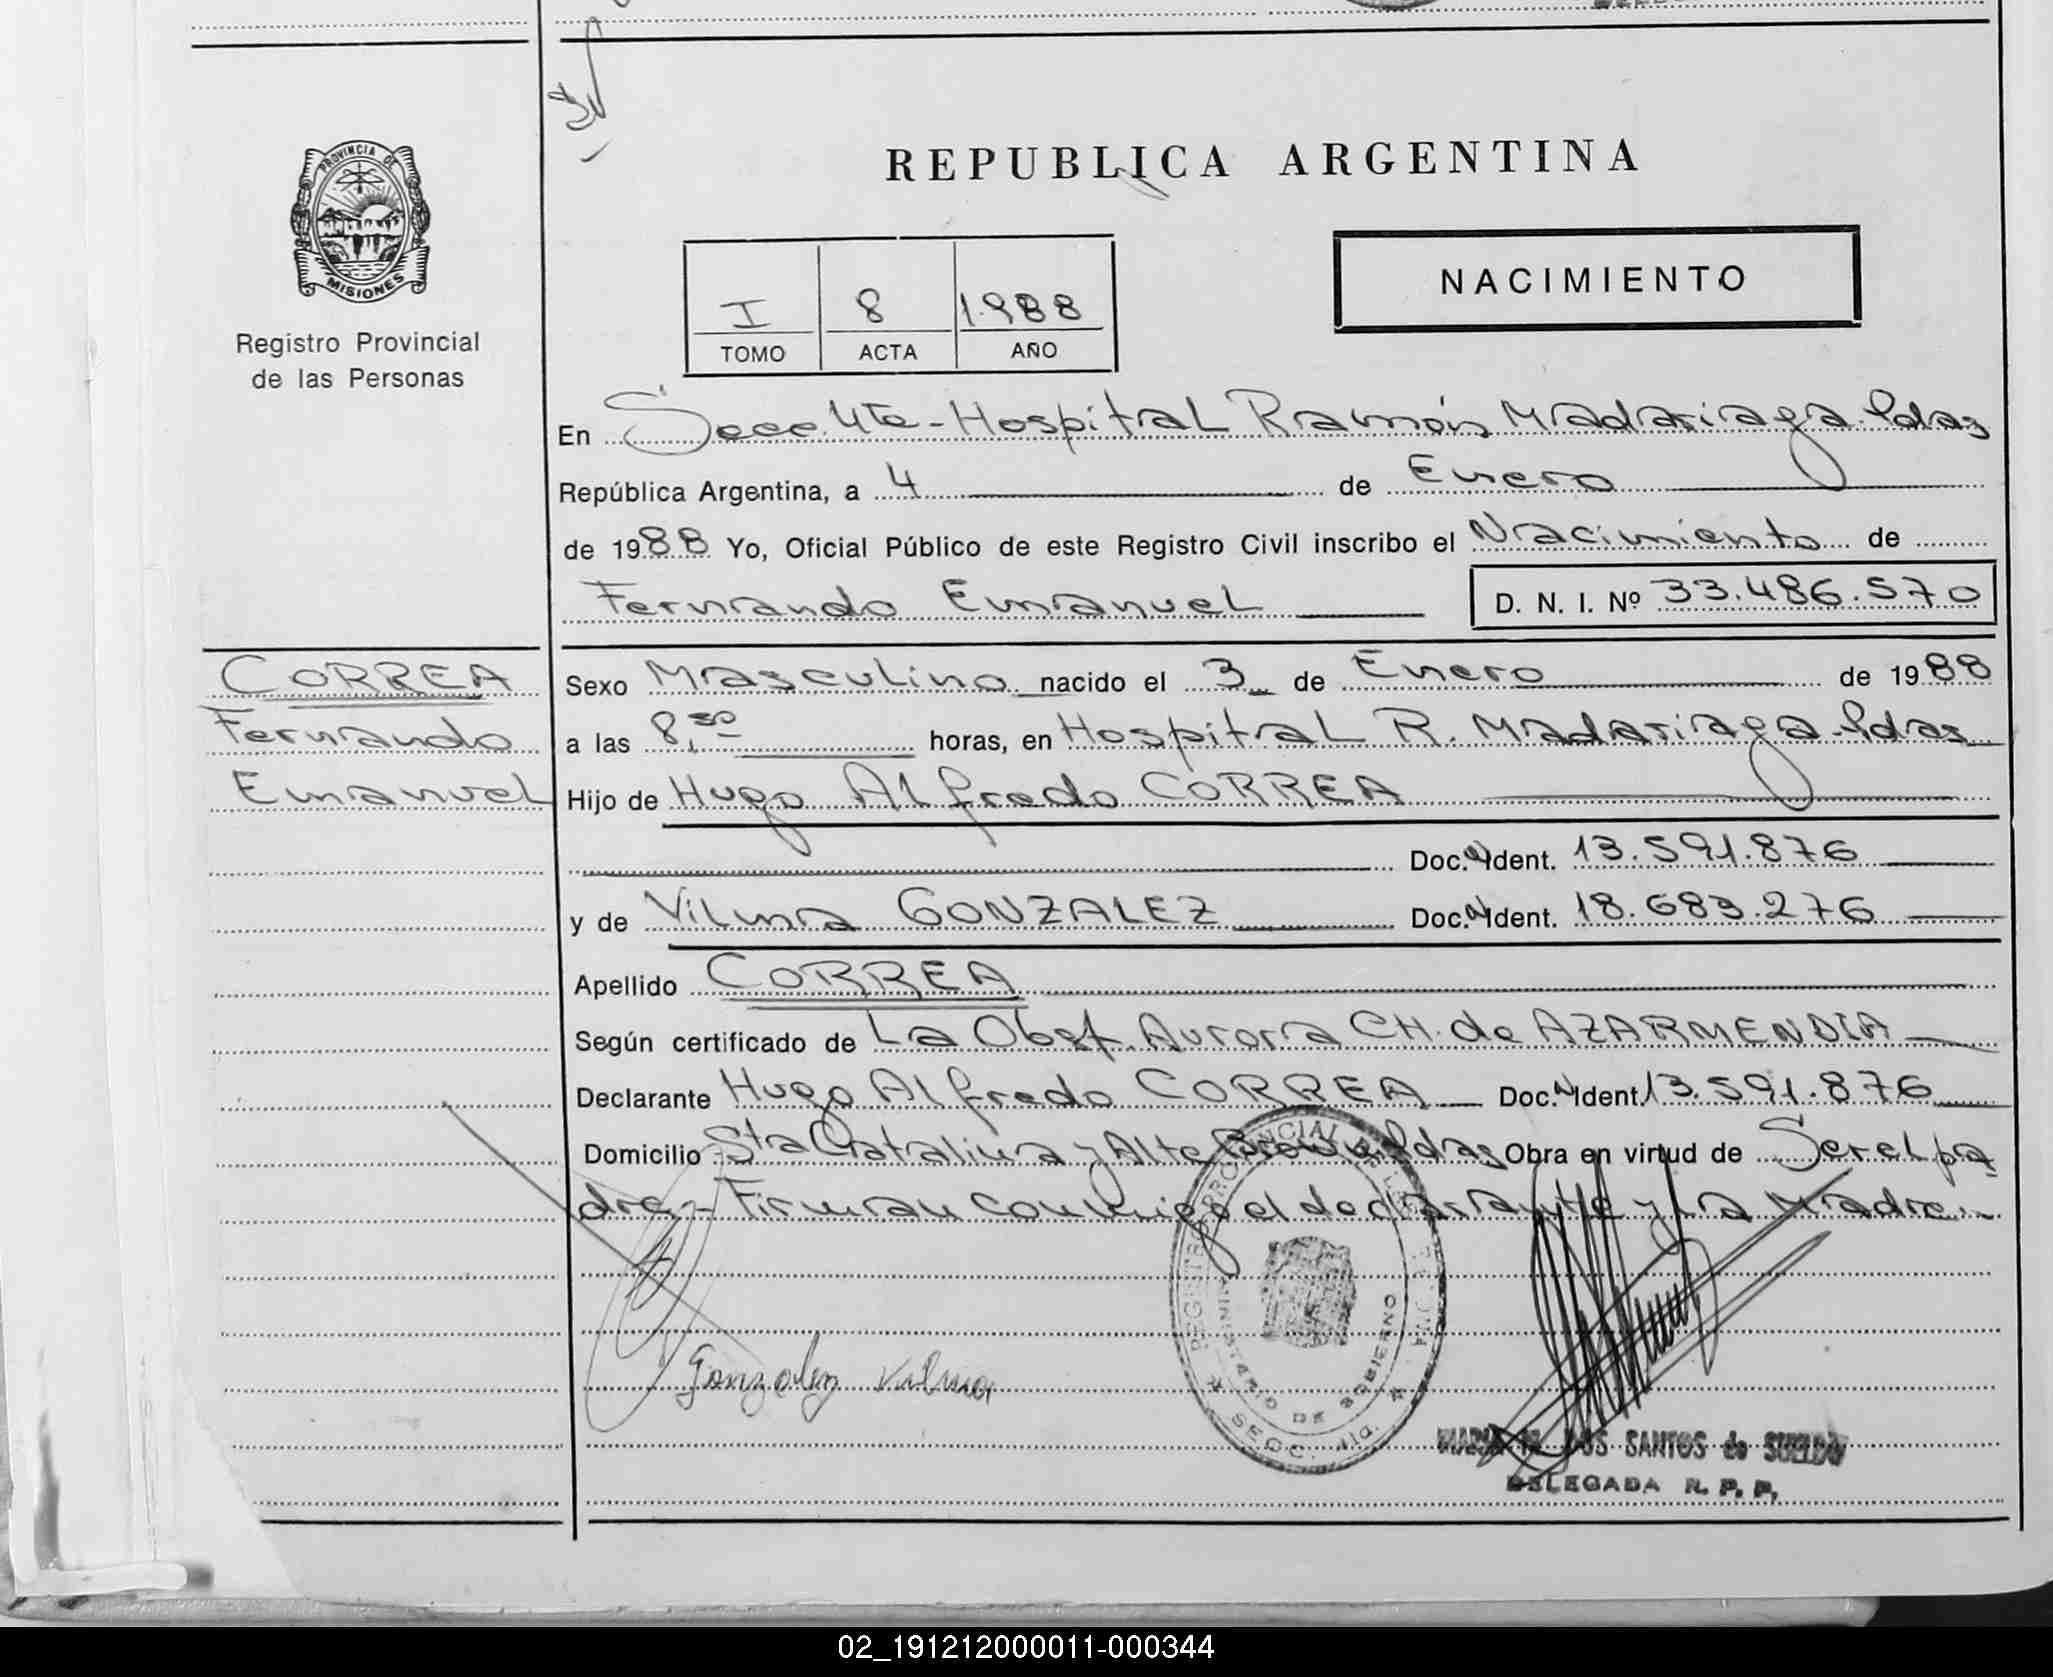 REPUBLICA ARGENTINA
PROVINCIA DE
MISIONES
Registro Provincial
de las Personas
I 8 1.988
TOMO ACTA AÑO
NACIMIENTO
En Secc. 4ta - Hospital Ramón Madariaga. Pdas
República Argentina, a 4 de Enero
de 1988 Yo, Oficial Público de este Registro Civil inscribo el Nacimiento de
Fernando Emanuel D. N. I. Nº 33.486.570
CORREA
Fernando
Emanuel
Sexo Masculino nacido el 3 de Enero de 1988
a las 8,30 horas, en Hospital R. Madariaga. Pdas
Hijo de Hugo Alfredo CORREA
Doc. N Ident. 13.591.876
y de Vilma GONZALEZ Doc. N Ident. 18.683.276
Apellido CORREA
Según certificado de La Obst. Aurora CH. de AZARMENDIA
Declarante Hugo Alfredo CORREA Doc. N Ident. 13.591.876
Domicilio Sta Catalina y Alte Brown. Pdas Obra en virtud de Ser el pa
dre - Firman conmigo el declarante y la Madre.-
Gonzalez Vilma
REGISTRO PROVINCIAL DE LAS
MINISTERIO DE GOBIERNO
SECC. 4ta.
DOS SANTOS de SUELDO
DELEGADA R. P. P.
02_191212000011-000344